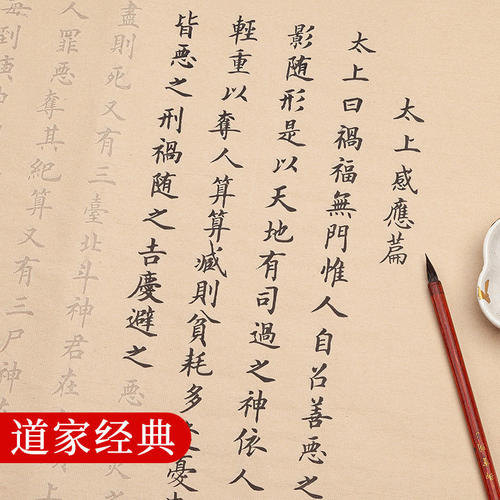 太上感應篇
太上曰禍福無門惟人自召善悪之
影随形是以天地有司過之神依人
輕重以奪人算算减則貧耗多憂
皆悪之刑禍随之吉慶避之悪
盡則死又有三臺北斗神君在
人罪悪奪其紀算又有三尸神
每到庚申
道家经典